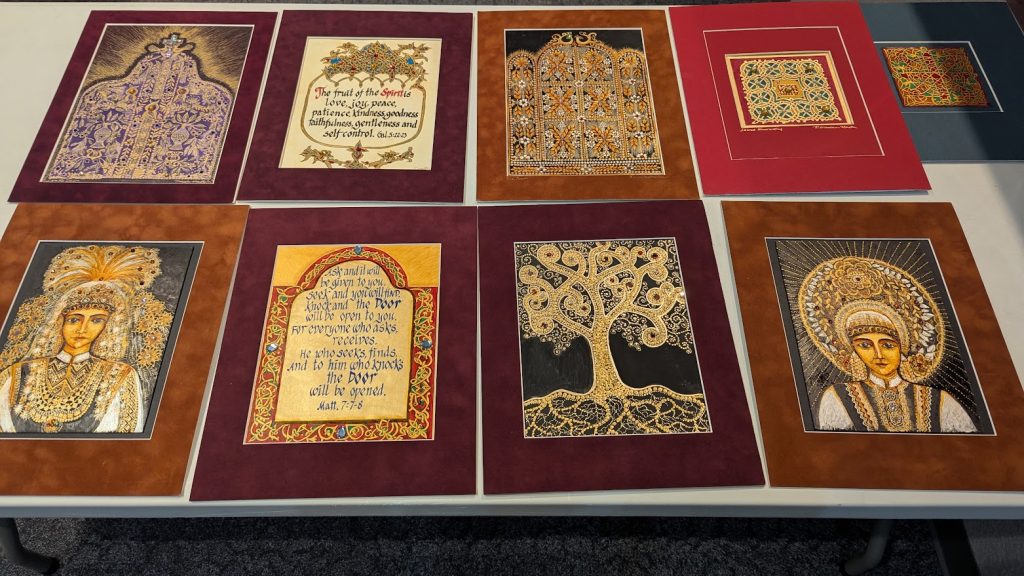 The fruit of the Spirit is
love, joy, peace,
patience, kindness, goodness
faithfulness, gentleness and
self-control. Gal. 5:22-23
Ask and it will
be given to you,
Seek and you will find,
Knock and the Door
will be open to you,
For everyone who asks,
receives.
He who seeks, finds,
And to him who knocks
the Door
will be opened.
Matt. 7-7-8